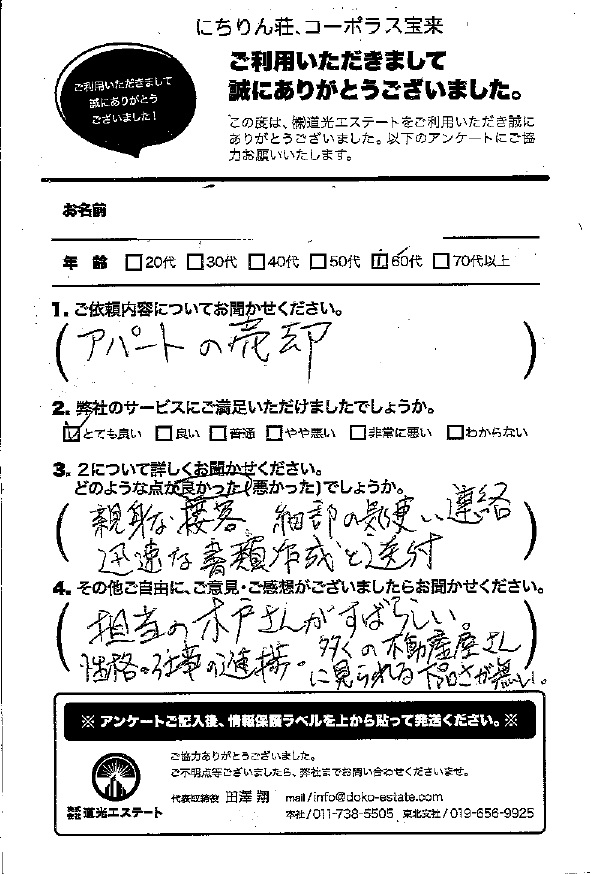 にちりん荘、コーポラス宝来
ご利用いただきまして
誠にありがとう
ございました！
ご利用いただきまして
誠にありがとうございました。
この度は、㈱道光エステートをご利用いただき誠に
ありがとうございました。以下のアンケートにご協
力お願いいたします。
お名前
年 齢 □20代 □30代 □40代 □50代 ☑60代 □70代以上
1. ご依頼内容についてお聞かせください。
(アパートの売却)
2. 弊社のサービスにご満足いただけましたでしょうか。
☑とても良い □良い □普通 □やや悪い □非常に悪い □わからない
3. 2について詳しくお聞かせください。
どのような点が良かった(悪かった)でしょうか。
親身な接客 細部の気使い 連絡
迅速な書類作成と送付
4. その他ご自由に、ご意見・ご感想がございましたらお聞かせください。
担当の木戸さんがすばらしい。
性格の 多くの不動産屋さん
に見られる下品さが無い。
※ アンケートご記入後、情報保護ラベルを上から貼って発送ください。※
ご協力ありがとうございました。
ご不明点等ございましたら、弊社までお問い合わせくださいませ。
株式会社 道光エステート
代表取締役 田澤 翔 mail/info@doko-estate.com
本社/011-738-5505 東北支社/019-656-9925